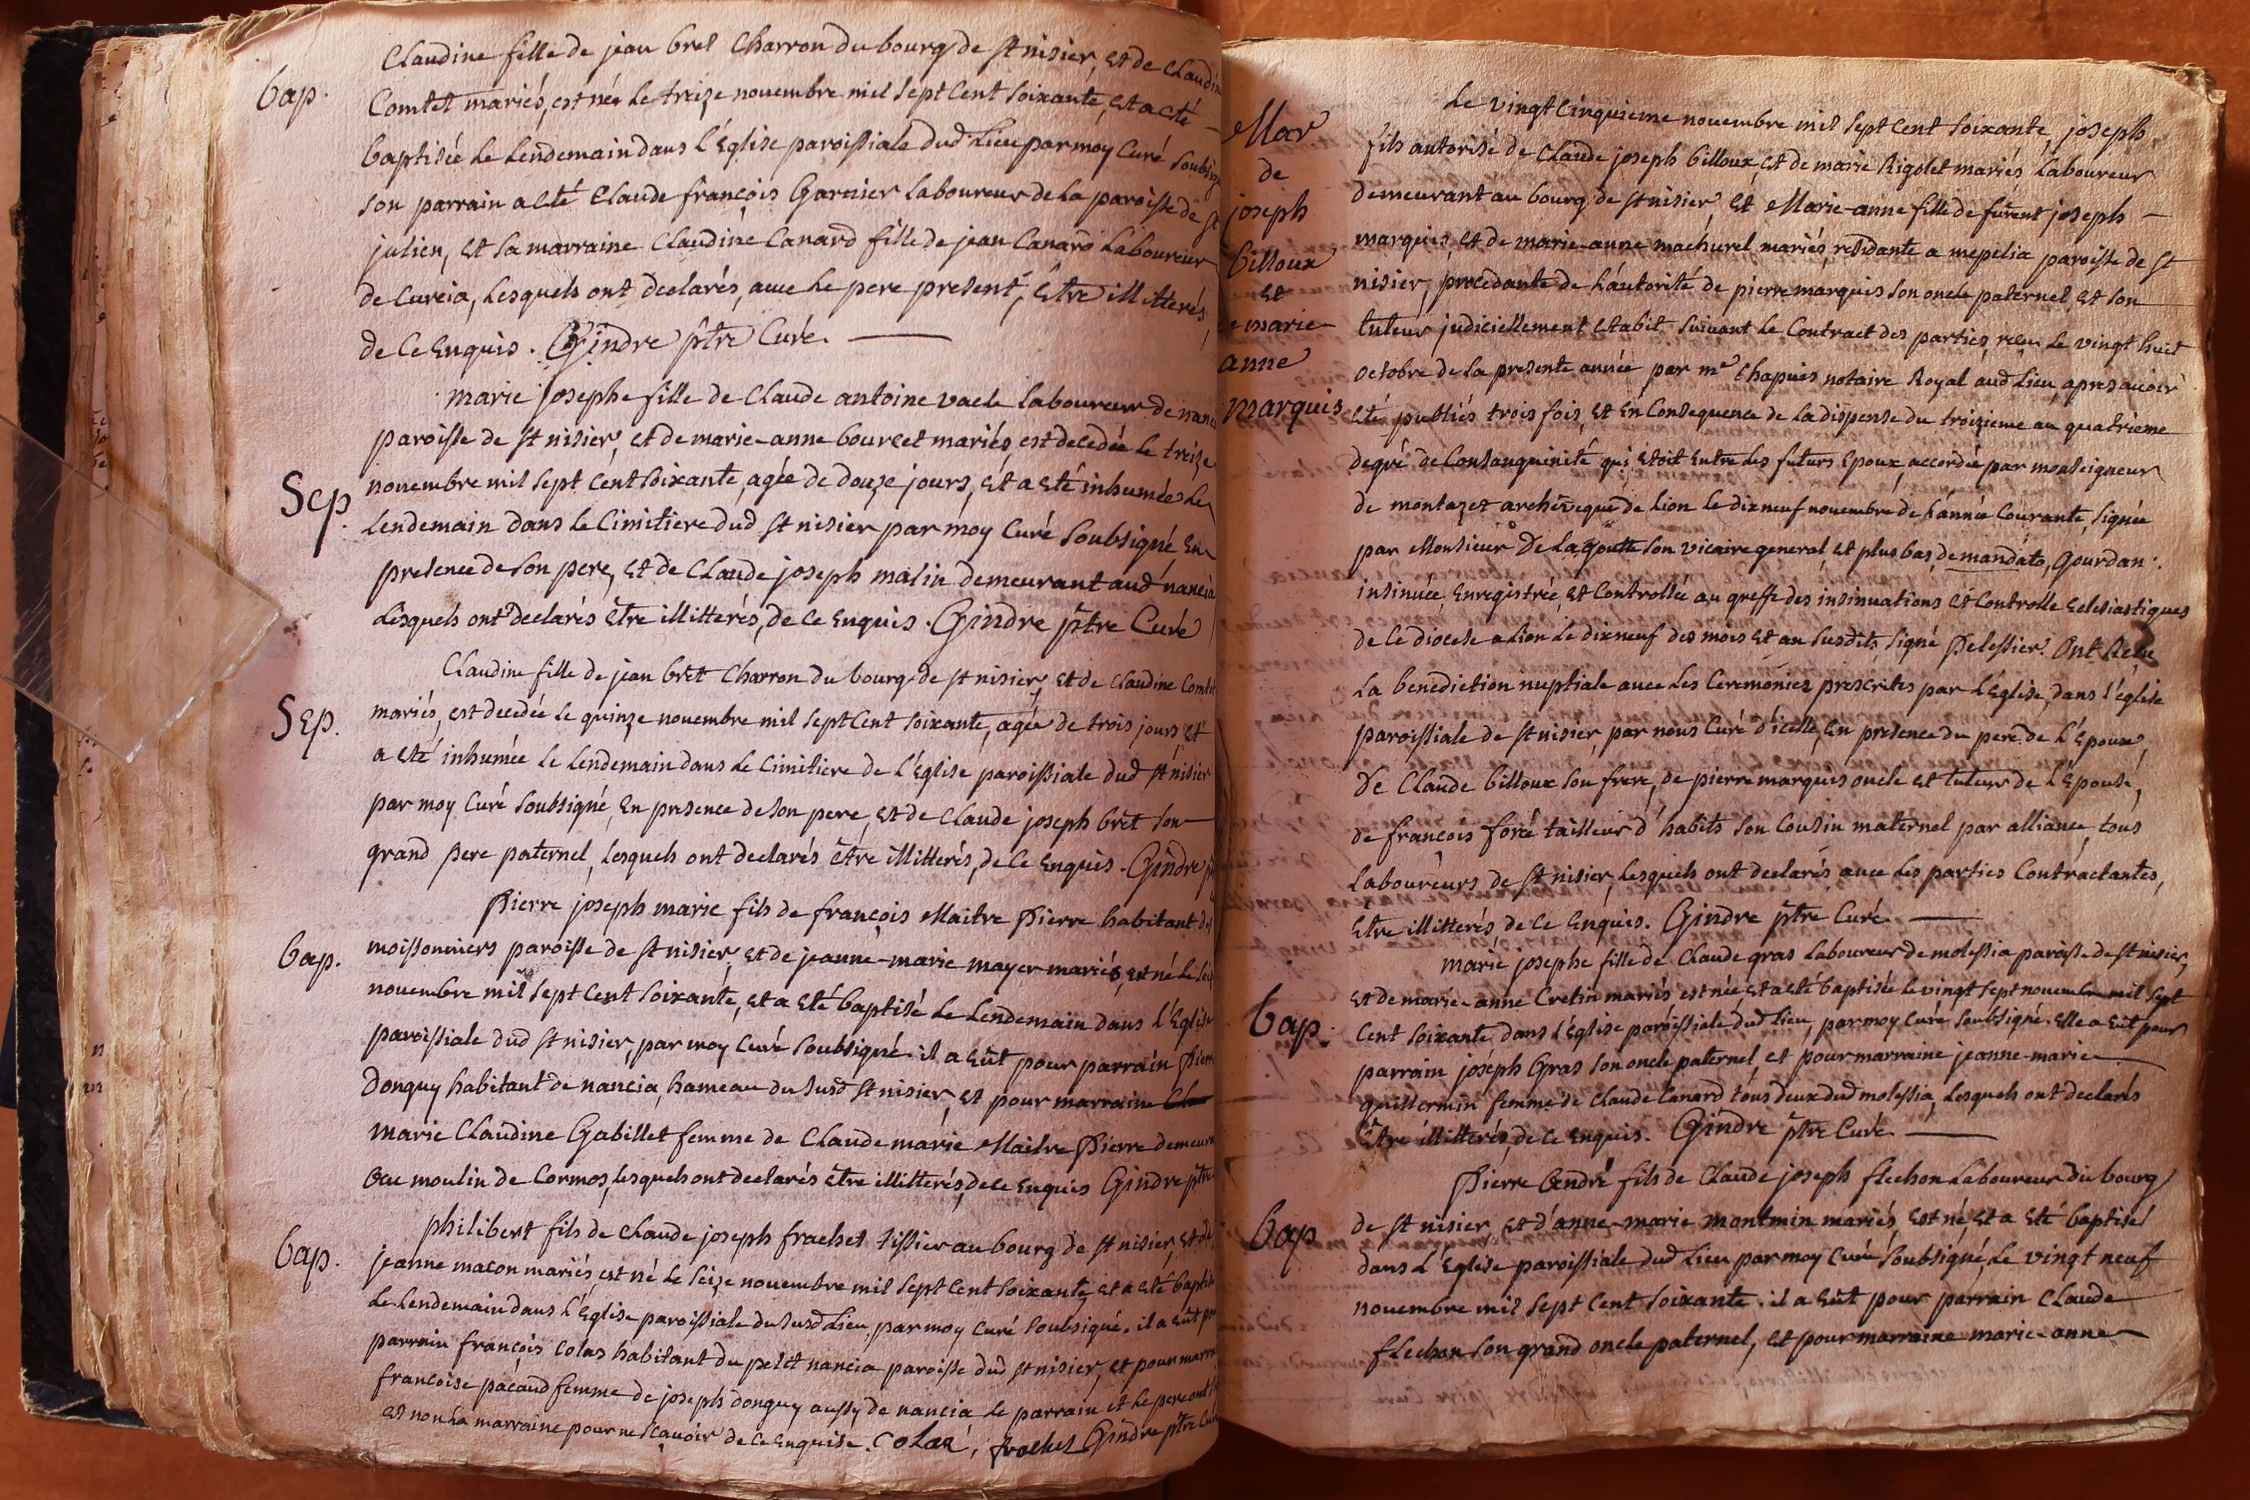 bap.
Claudine fille de jean bret Charron du bourg de st nisier, et de claudine
Comtet mariés, est née le treize novembre mil sept cent soixante, et a eté
baptisée le lendemain dans l'Eglise paroissiale dud lieu par moy curé soubsigné
son parrain a eté Claude françois Garnier laboureur de la paroisse de st
julien, et sa marraine Claudine Canard fille de jean Canard laboureur
de Cureia, lesquels ont declarés, avec le pere present, Etre illitterés,
de ce enquis. Gindre ptre Curé.
Sep.
marie josephe fille de Claude antoine vacle laboureur de nancia
paroisse de st nisier, et de marie-anne bourcet mariés, est decedée le treize
novembre mil sept cent soixante, agée de douze jours, et a eté inhumée le
lendemain dans le Cimitiere dud st nisier par moy Curé soubsigné En
presence de son pere, et de Claude joseph malin demeurant aud nancia
lesquels ont declarés Etre illitterés, de ce enquis. Gindre ptre Curé
Sep.
Claudine fille de jean bret Charron du bourg de st nisier, et de claudine Comtet
mariés, est decedée le quinze novembre mil sept cent soixante, agée de trois jours et
a eté inhumée le lendemain dans le Cimitiere de l'Eglise paroissiale dud st nisier
par moy Curé soubsigné, En presence de son pere, et de Claude joseph bret son
grand pere paternel, lesquels ont declarés être illitterés, de ce enquis. Gindre
bap.
Pierre joseph marie fils de françois Maitre Pierre habitant des
moissonniers paroisse de st nisier, et de jeanne-marie mayer mariés, est né le
novembre mil sept cent soixante, et a eté baptisé le lendemain dans l'Eglise
paroissiale dud st nisier, par moy Curé soubsigné. il a eut pour parrain Pierre
Donguy habitant de nancia, hameau du susd st nisier, et pour marraine
marie Claudine Gabillet femme de Claude marie Maitre Pierre
au moulin de Cormos, lesquels ont declarés être illitterés, de ce enquis Gindre ptre
bap.
philibert fils de Claude joseph frachet tissier au bourg de st nisier, et de
jeanne macon mariés, est né le seize novembre mil sept cent soixante, et a eté baptisé
le lendemain dans l'Eglise paroissiale du susd lieu, par moy curé soubsigné. il a eut pour
parrain françois Colas habitant du petit nancia paroisse dud st nisier, et pour marraine
françoise pacaud femme de joseph donguy aussy de nancia, le parrain et le pere ont
et non la marraine pour ne sçavoir de ce enquise. Colas, frachet Gindre ptre Curé
Mar
de
joseph
billoux
et
de marie
anne
marquis
Le vingt cinquieme novembre mil sept cent soixante, joseph
fils autorisé de Claude joseph billoux, et de marie Rigolet mariés laboureur
demeurant au bourg de st nisier, et Marie-anne fille de furent joseph
marquis, et de marie-anne machurel mariés, residante a mepelia paroisse de st
nisier, procedante de l'autorité de pierre marquis son oncle paternel, et son
tuteur judiciellement etabit suivant le Contract des parties, reçu le vingt huit
octobre de la presente année par me Chapuis notaire Royal aud lieu, apres avoir
eté publiés trois fois, et En Consequence de la dispense du troizieme au quatrieme
degré de Consanguinité qui etoit entre les futurs Epoux, accordée par monseigneur
de montazet archeveque de lion le dix neuf novembre de l'année Courante, signée
par Monsieur De lagoutte son vicaire general, et plus bas de mandato, Gourdan.
insinuée, Enregistrée, et Controllée au greffe des insinuations et Controlle eclesiastiques
de ce diocese a lion le dix neuf des mois et an susdits, signé Pelessier. Ont Reçu
la benediction nuptiale avec les Ceremonies prescrites par l'Eglise, dans l'église
paroissiale de st nisier, par nous Curé d'icelle, En presence du pere de l'Epoux,
de Claude billoux son frere, de pierre marquis oncle et tuteur de l'Epouse,
de françois foré tailleur d'habits son Cousin maternel par alliance, tous
laboureurs de st nisier, lesquels ont declarés avec les parties Contractantes,
Etre illitterés de ce enquis. Gindre ptre Curé
bap.
marie josephe fille de Claude gras laboureur de molessia paroisse de st nisier,
et de marie-anne Cretin mariés est née, et a eté baptisée le vingt sept novembre mil sept
Cent soixante dans l'Eglise paroissiale dud lieu, par moy curé soubsigné. elle a eut pour
parrain joseph Gras son oncle paternel, et pour marraine jeanne-marie
guillermin femme de Claude Canard tous deux dud molessia, lesquels ont declarés
Etre illitterés, de ce enquis. Gindre ptre Curé
bap
Pierre André fils de Claude joseph flechon laboureur du bourg
de st nisier, et d'anne-marie montmin mariés, est né, et a eté baptisé
dans l'Eglise paroissiale dud lieu par moy curé soubsigné, le vingt neuf
novembre mil sept cent soixante. il a eut pour parrain Claude
flechon son grand oncle paternel, et pour marraine marie-anne